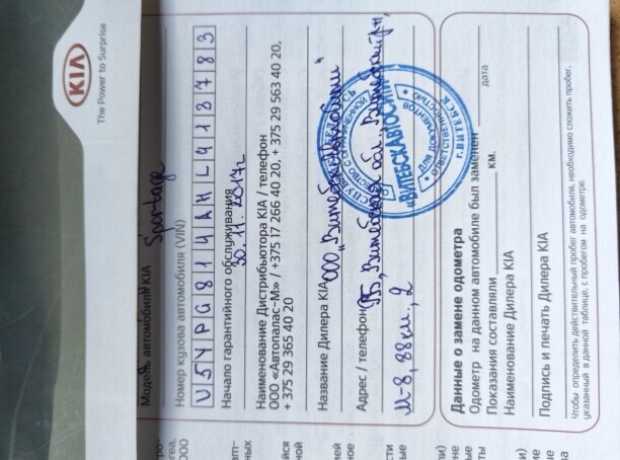 KIA
The Power to Surprise
Модель автомобиля KIA Sportage
Номер кузова автомобиля (VIN)
U5YPG814AHL413783
Начало гарантийного обслуживания
30.11.2017г.
Наименование Дистрибьютора KIA / телефон
ООО «Автопалас-М» / +375 17 266 40 20, + 375 29 563 40 20,
+ 375 29 365 40 20
Название Дилера KIA ООО "Витебскавтосити"
Адрес / телефон РБ, Витебская обл., Витебский р-н,
М-8, 88км., 2
ВИТЕБСКАВТОСИТИ
ДЛЯ ДОКУМЕНТОВ
г. ВИТЕБСК
Данные о замене одометра
Одометр на данном автомобиле был заменен
дата
Показания составляли км.
Наименование Дилера KIA
Подпись и печать Дилера KIA
Чтобы определить действительный пробег автомобиля, необходимо сложить пробег,
указанный в данной таблице, с пробегом на одометре.